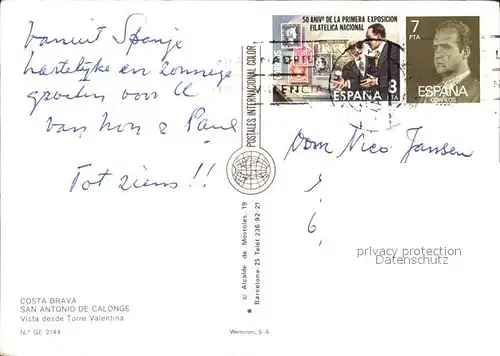 Vanuit Spanje
hartelijke en zonnige
groeten voor U
van Mon & Paul
Tot ziens !!
50 ANIVº DE LA PRIMERA EXPOSICION
FILATELICA NACIONAL
MADRID
VALENCIA
ESPAÑA
8
PTA
7
PTA
ESPAÑA
CORREOS
POSTALES INTERNACIONAL COLOR
c/ Alcalde de Móstoles, 19
Barcelona-25 Teléf. 236-92-21
Nico Jansen
privacy protection
Datenschutz
COSTA BRAVA
SAN ANTONIO DE CALONGE
Vista desde Torre Valentina
N.º GE 2144
S. A